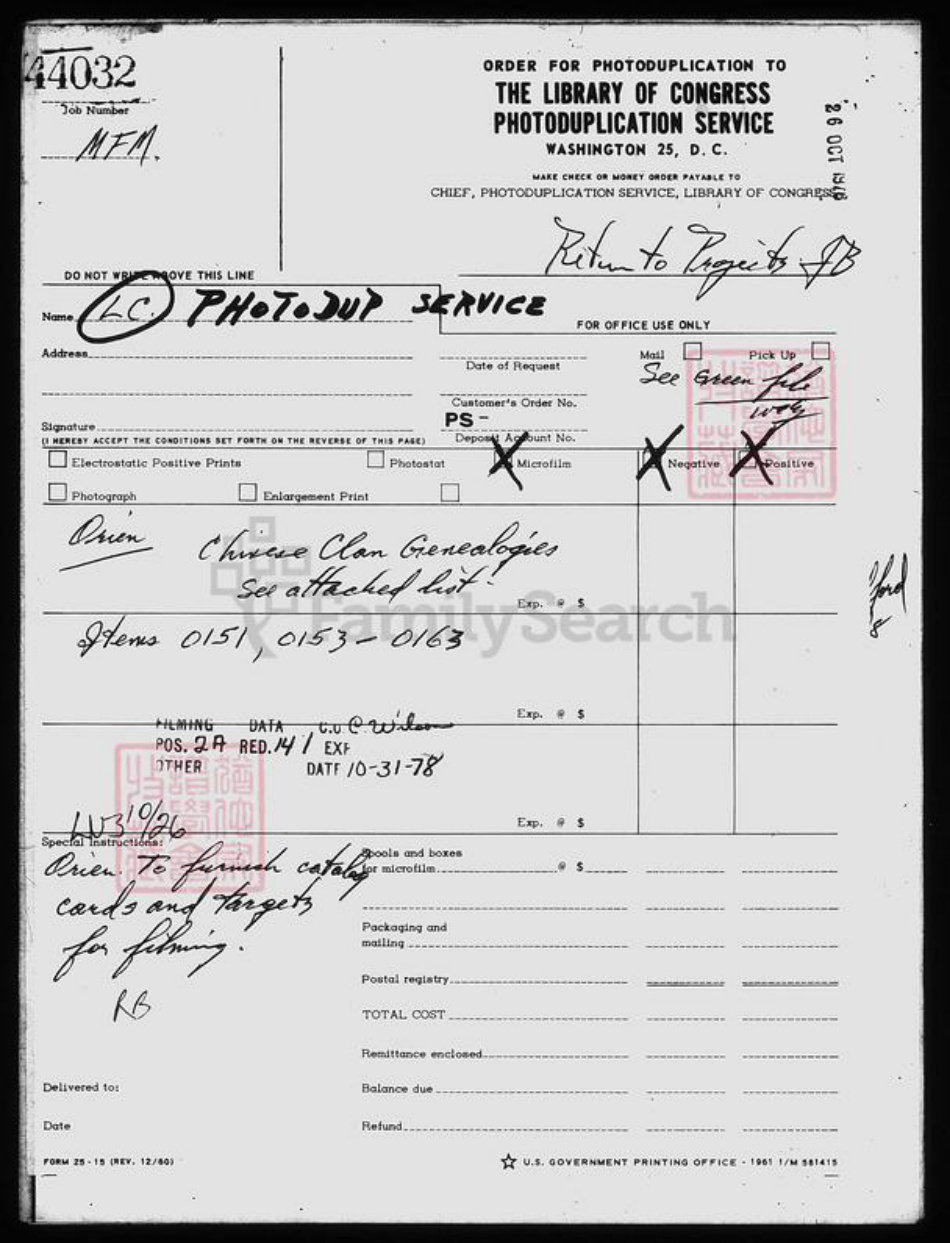 44032
Job Number
MFM.
ORDER FOR PHOTODUPLICATION TO
THE LIBRARY OF CONGRESS
PHOTODUPLICATION SERVICE
WASHINGTON 25, D. C.
MAKE CHECK OR MONEY ORDER PAYABLE TO
CHIEF, PHOTODUPLICATION SERVICE, LIBRARY OF CONGRESS
26 OCT
Return to Projects JB
DO NOT WRITE ABOVE THIS LINE
Name LC. PHOTODUP SERVICE
FOR OFFICE USE ONLY
Address
Date of Request
Mail Pick Up
See Green file
Customer's Order No.
PS -
Signature
(I HEREBY ACCEPT THE CONDITIONS SET FORTH ON THE REVERSE OF THIS PAGE)
Deposit Account No.
Electrostatic Positive Prints Photostat X Microfilm X Negative X Positive
Photograph Enlargement Print
Orien Chinese Clan Genealogies
See attached list.
Exp. @ $
FamilySearch
Items 0151, 0153 - 0163
Exp. @ $
FILMING DATA C.O. C. Wilson
POS. 2A RED. 14/ EXP
OTHER DATE 10-31-78
10/26
Exp. @ $
Special Instructions:
Orien. To furnish catalog
cards and targets
for filming.
RB
Spools and boxes
for microfilm @ $
Packaging and
mailing
Postal registry
TOTAL COST
Remittance enclosed
Delivered to:
Balance due
Date
Refund
FORM 25-15 (REV. 12/60)
☆ U.S. GOVERNMENT PRINTING OFFICE - 1961 1/M 581415